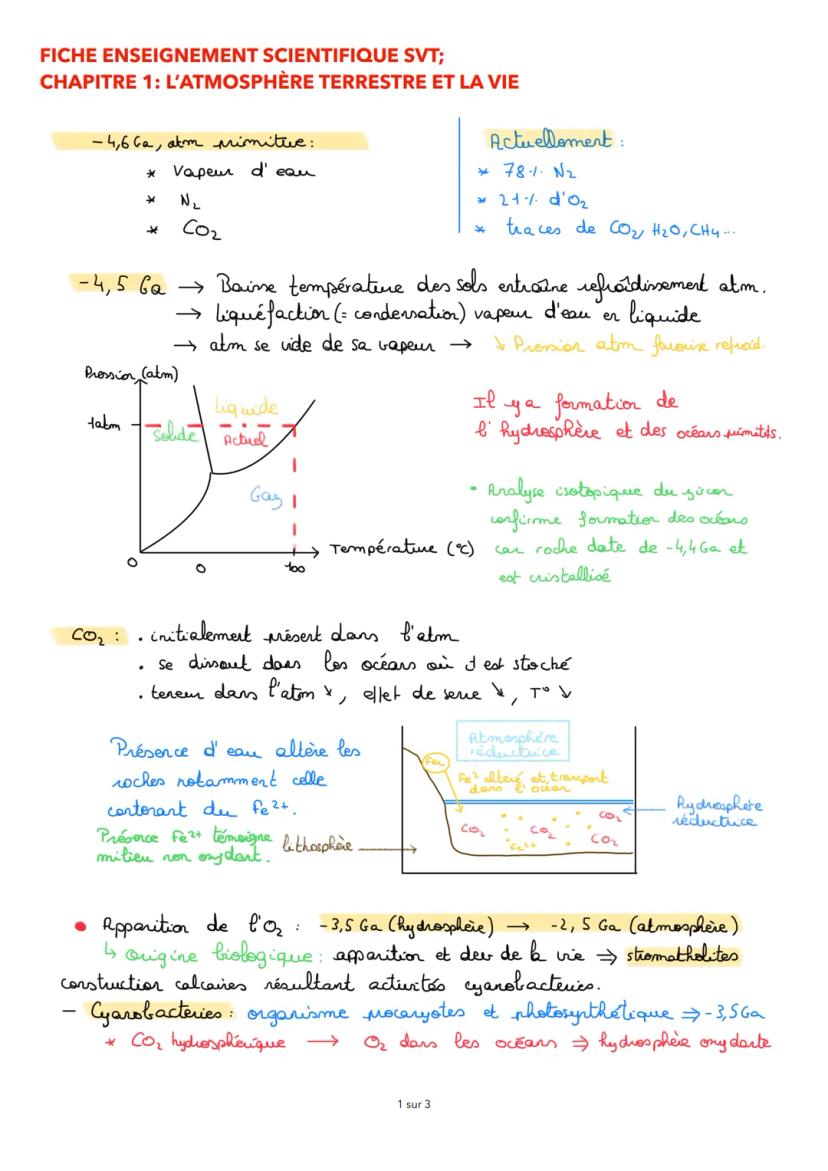 FICHE ENSEIGNEMENT SCIENTIFIQUE SVT;
CHAPITRE 1: L'ATMOSPHÈRE TERRESTRE ET LA VIE
-4,6 Ga, atm primitive :
* Vapeur d'eau
* N2
* CO2
Actuellement :
* 78 % N2
* 21 % d'O2
* traces de CO2, H2O, CH4...
-4,5 Ga → Baisse température des sols entraîne refroidissement atm.
→ liquéfaction (= condensation) vapeur d'eau en liquide
→ atm se vide de sa vapeur → ↘ Pression atm favorise refroid.
Pression (atm)
1atm
Solide
Liquide
Actuel
Gaz
0
0
100
Température (°C)
Il y a formation de
l'hydrosphère et des océans primitifs.
• Analyse isotopique du zircon
confirme formation des océans
car roche date de -4,4 Ga et
est cristallisé
CO2 : . initialement présent dans l'atm
. se dissout dans les océans où il est stocké
. teneur dans l'atm ↘, effet de serre ↘, T° ↘
Présence d'eau altère les
roches notamment celle
contenant du Fe2+.
Présence Fe2+ témoigne
milieu non oxydant.
lithosphère
Atmosphère
réductrice
Fe2 altéré et transport
dans l'océan
CO2
CO2
CO2
CO2
Hydrosphère
réductrice
• Apparition de l'O2 : -3,5 Ga (hydrosphère) → -2,5 Ga (atmosphère)
↳ origine biologique : apparition et dev de la vie ⇒ stromatholites
construction calcaires résultant activités cyanobactéries.
- Cyanobacteries : organisme procaryotes et photosynthétique ⇒ -3,5 Ga
* CO2 hydrosphérique → O2 dans les océans ⇒ hydrosphère oxydante
1 sur 3